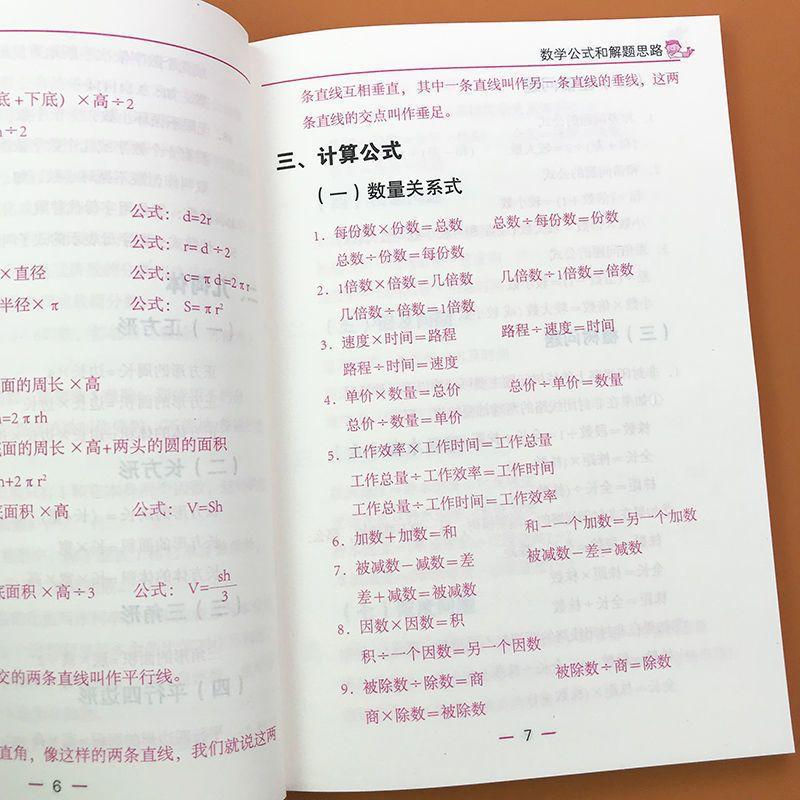 底+下底）×高÷2
h÷2
公式： d=2r
公式： r= d ÷2
×直径 公式： c=π d =2π r
半径×π 公式： S=π r²
面的周长×高
h=2π rh
底面的周长×高+两头的圆的面积
h+2π r²
底面积×高 公式： V=Sh
底面积×高÷3 公式： V=sh/3
交的两条直线叫作平行线。
直角，像这样的两条直线，我们就说这两
— 6 —
数学公式和解题思路
条直线互相垂直，其中一条直线叫作另一条直线的垂线，这两
条直线的交点叫作垂足。
三、计算公式
（一）数量关系式
1. 每份数×份数=总数 总数÷每份数=份数
总数÷份数=每份数
2. 1倍数×倍数=几倍数 几倍数÷1倍数=倍数
几倍数÷倍数=1倍数
3. 速度×时间=路程 路程÷速度=时间
路程÷时间=速度
4. 单价×数量=总价 总价÷单价=数量
总价÷数量=单价
5. 工作效率×工作时间=工作总量
工作总量÷工作效率=工作时间
工作总量÷工作时间=工作效率
6. 加数+加数=和 和－一个加数=另一个加数
7. 被减数－减数=差 被减数－差=减数
差+减数=被减数
8. 因数×因数=积
积÷一个因数=另一个因数
9. 被除数÷除数=商 被除数÷商=除数
商×除数=被除数
— 7 —